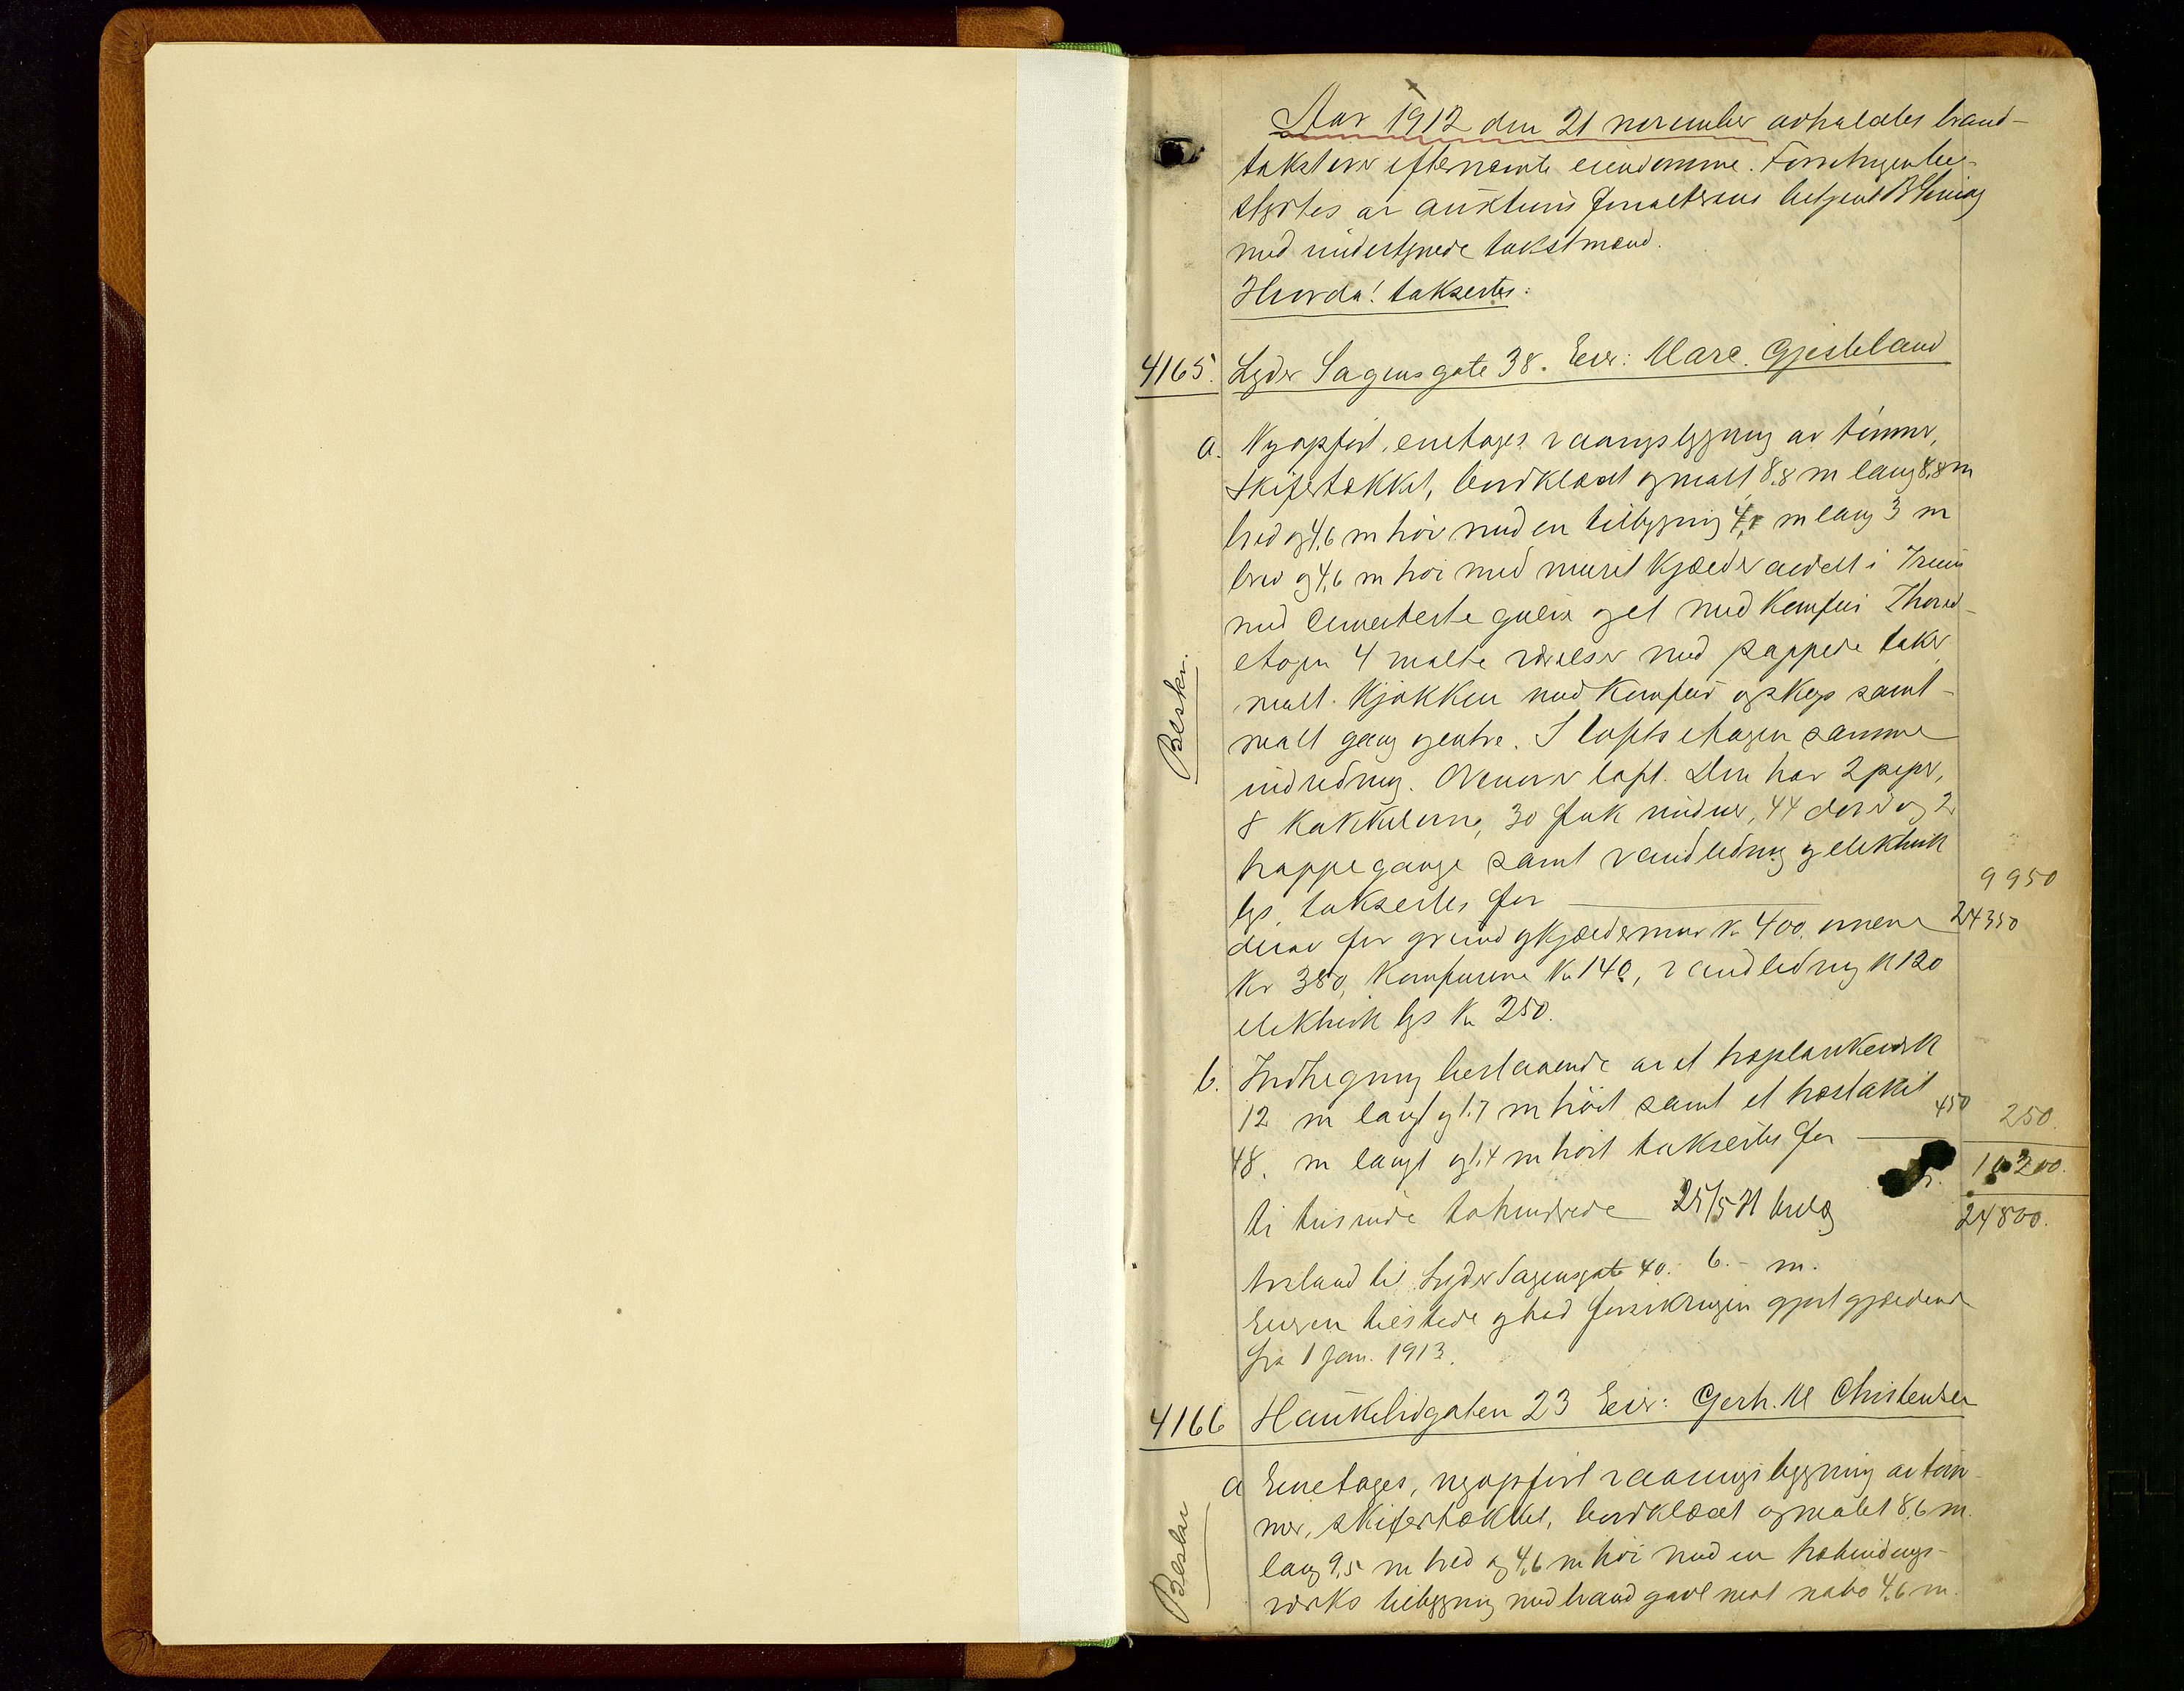 Aar 1912 den 21 november avholdtes brand-
takst over efternævnte eiendomme. Forretningen be-
styrtes av auktions forvalterens betjent
med undertegnede takstmænd.
Hvorda! takseertes:
4165. Lyder Sagensgate 38. Eier: Mare. Gjesteland
a. Nyopført, enetages vaaningsbygning av tømmer,
skifertækket, bordklædt og malt 8,8 m lang 8,8 m
bred og 4,6 m høi med en tilbygning 4, m lang 3 m
bred og 4,6 m høi med muret kjælder avdelt i 3 rum
med cementerte gulve og et med komfur I hoved-
etagen 4 malte værelser med pappede taker
malt. Kjøkken med komfur og skap samt
malt gang og entre. I loftsetagen samme
indredning. Ovenover loft. Den har 2 piper,
8 kakkelovne, 30 fak vinduer, 44 dører og 2
trappegange samt vandledning og elektrisk
lys, takseertes for 9950
24350
derav for grund og kjældermur kr 400. ovnene
kr 380, komfurene kr 140, vandledning kr 120
elektrisk lys kr 250.
Beskr.
b. Indhegning bestaaende av et træplankeverk
12 m langt og 1.7 m høit samt et træstakit
48. m langt og 1.4 m høit takseertes for 450 250.
10200.
ti tusinde tohundrede 25/5 24800.
Avstand til Lyder Sagensgate 40. 6.- m.
Eieren tilstede og bad forsikringen gjort gjældende
fra 1 Jan. 1913.
4166 Haukelidgaten 23 Eier: Gerh. M Christensen
a Enetages, nyopført vaaningsbygning av tøm-
mer, skifertækket, bordklædt og malet 8,6 m.
lang 9,5 m bred og 4,6 m høi med en træbindings-
værks tilbygning med brandgavl mot nabo 4,6 m.
Beskr